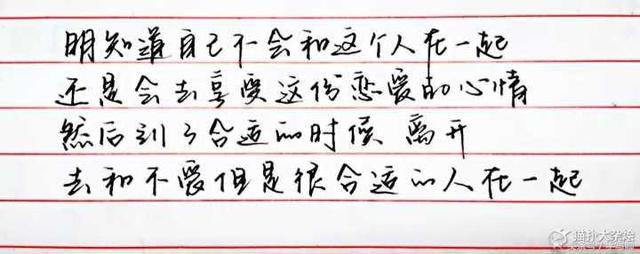 明知道自己不会和这个人在一起
还是会去享受这份恋爱的心情
然后到了合适的时候 离开
去和不爱但是很合适的人在一起